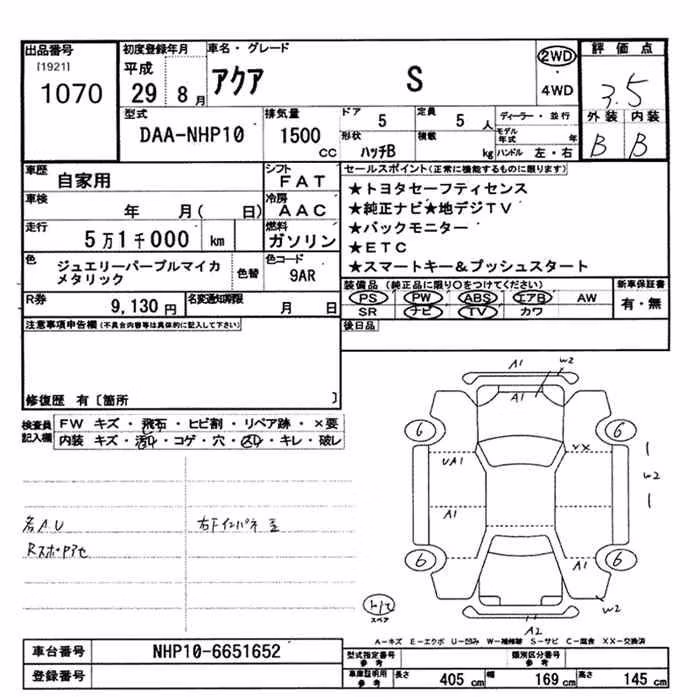 出品番号
[1921]
1070
初度登録年月
平成
29 8 月
車名・グレード
アクア S
2WD
4WD
評価点
3.5
外装 内装
B B
型式
DAA-NHP10
排気量
1500
cc
ドア
5
定員
5 人
形状
ハッチB
積載
kg
ディーラー・並行
モデル年式 年
ハンドル 左・右
車歴
自家用
シフト
FAT
車検
年 月( 日)
冷房
AAC
走行
5万1千000 km
燃料
ガソリン
色
ジュエリーパープルマイカ
メタリック
色替
色コード
9AR
R券
9,130 円
名変通知期限
月 日
セールスポイント(正常に機能するものに限ります)
★トヨタセーフティセンス
★純正ナビ★地デジTV
★バックモニター
★ETC
★スマートキー&プッシュスタート
装備品(純正品に限り○をつけてください)
PS PW ABS エアB AW
SR ナビ TV カワ
新車保証書
有・無
後日品
注意事項申告欄(不具合内容等は具体的に記入して下さい)
修復歴 有〔箇所 〕
検査員
記入欄
FW キズ・飛石・ヒビ割・リペア跡・×要
内装 キズ・汚れ・コゲ・穴・スレ・キレ・破レ
各A.U
右下インパネ
Rスポ
A1
W2
A1
6
6
UA1
XX
W2
A1
A1
6
6
W2
A2
スペア
A－キズ E－エクボ U－凹み W－補修跡 S－サビ C－腐食 XX－交換済
車台番号
NHP10-6651652
登録番号
型式指定番号
参考
類別区分番号
参考
車庫証明用
参考
長さ 405 cm 幅 169 cm 高さ 145 cm